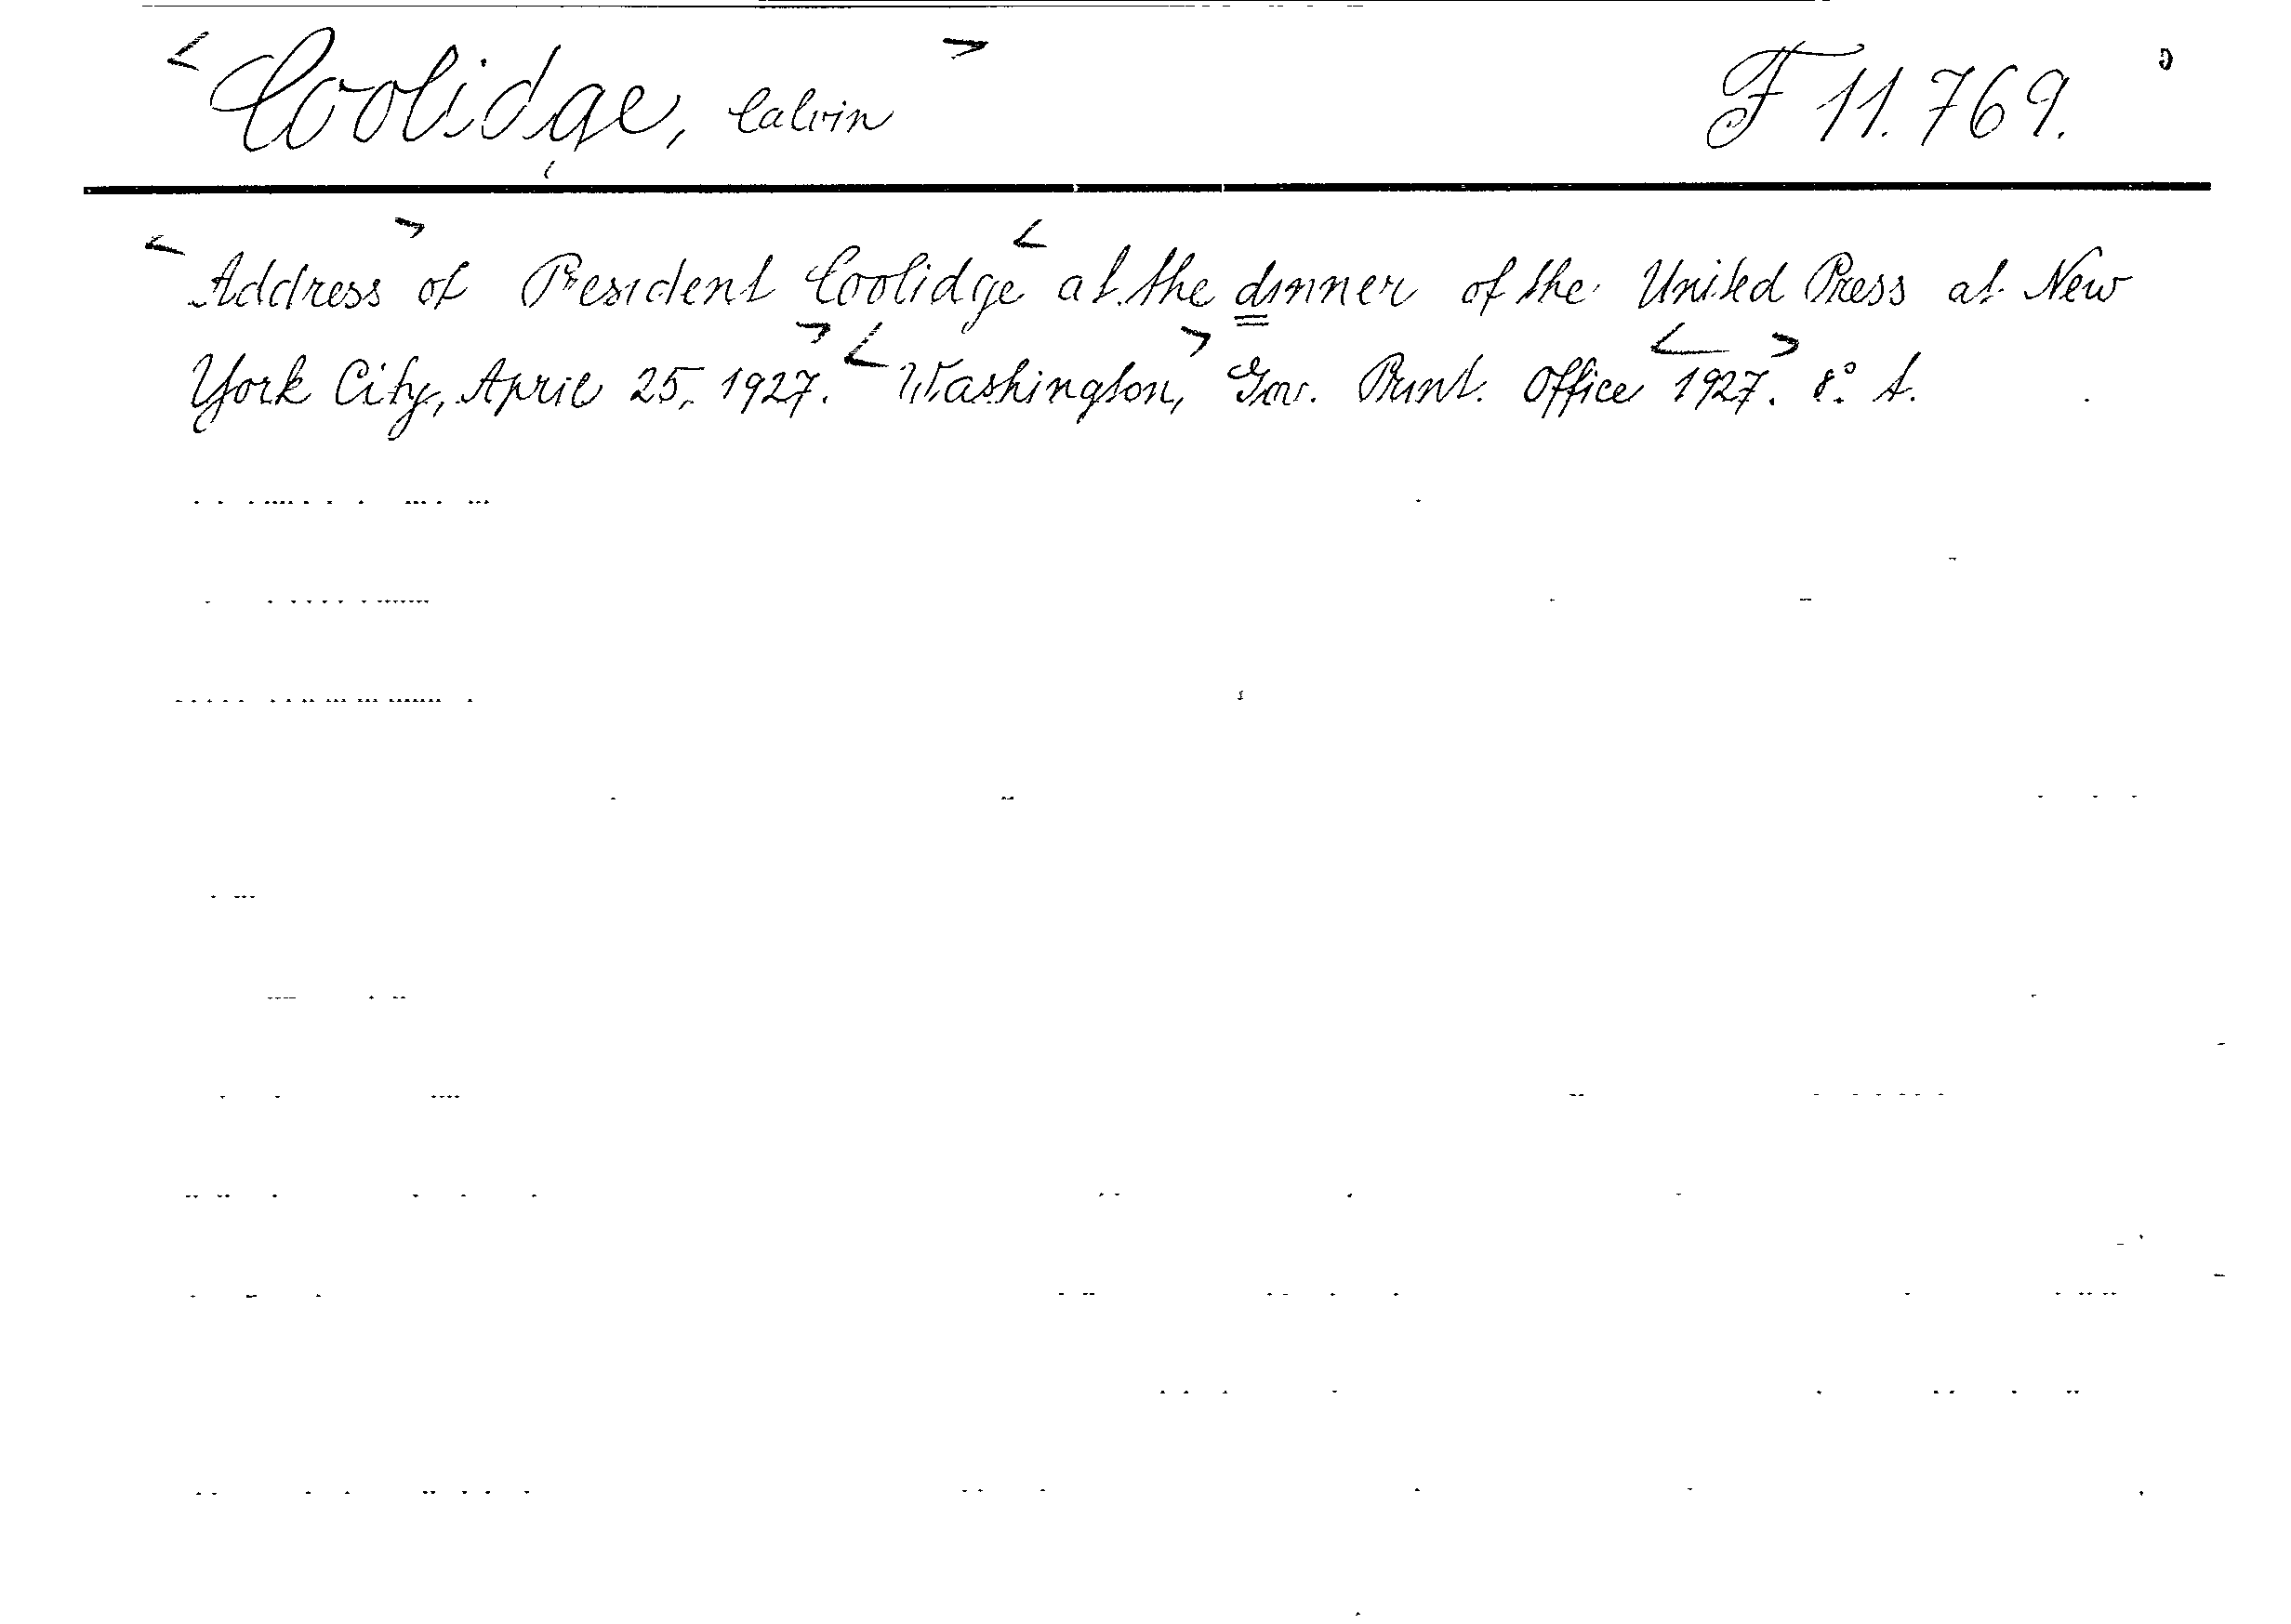 < Coolidge, Calvin > F 11.769.
< Address > of President Coolidge < at the dinner of the United Press at New
York City, April 25, 1927. > < Washington, > Gov. Print. Office < 1927. > 8° A.